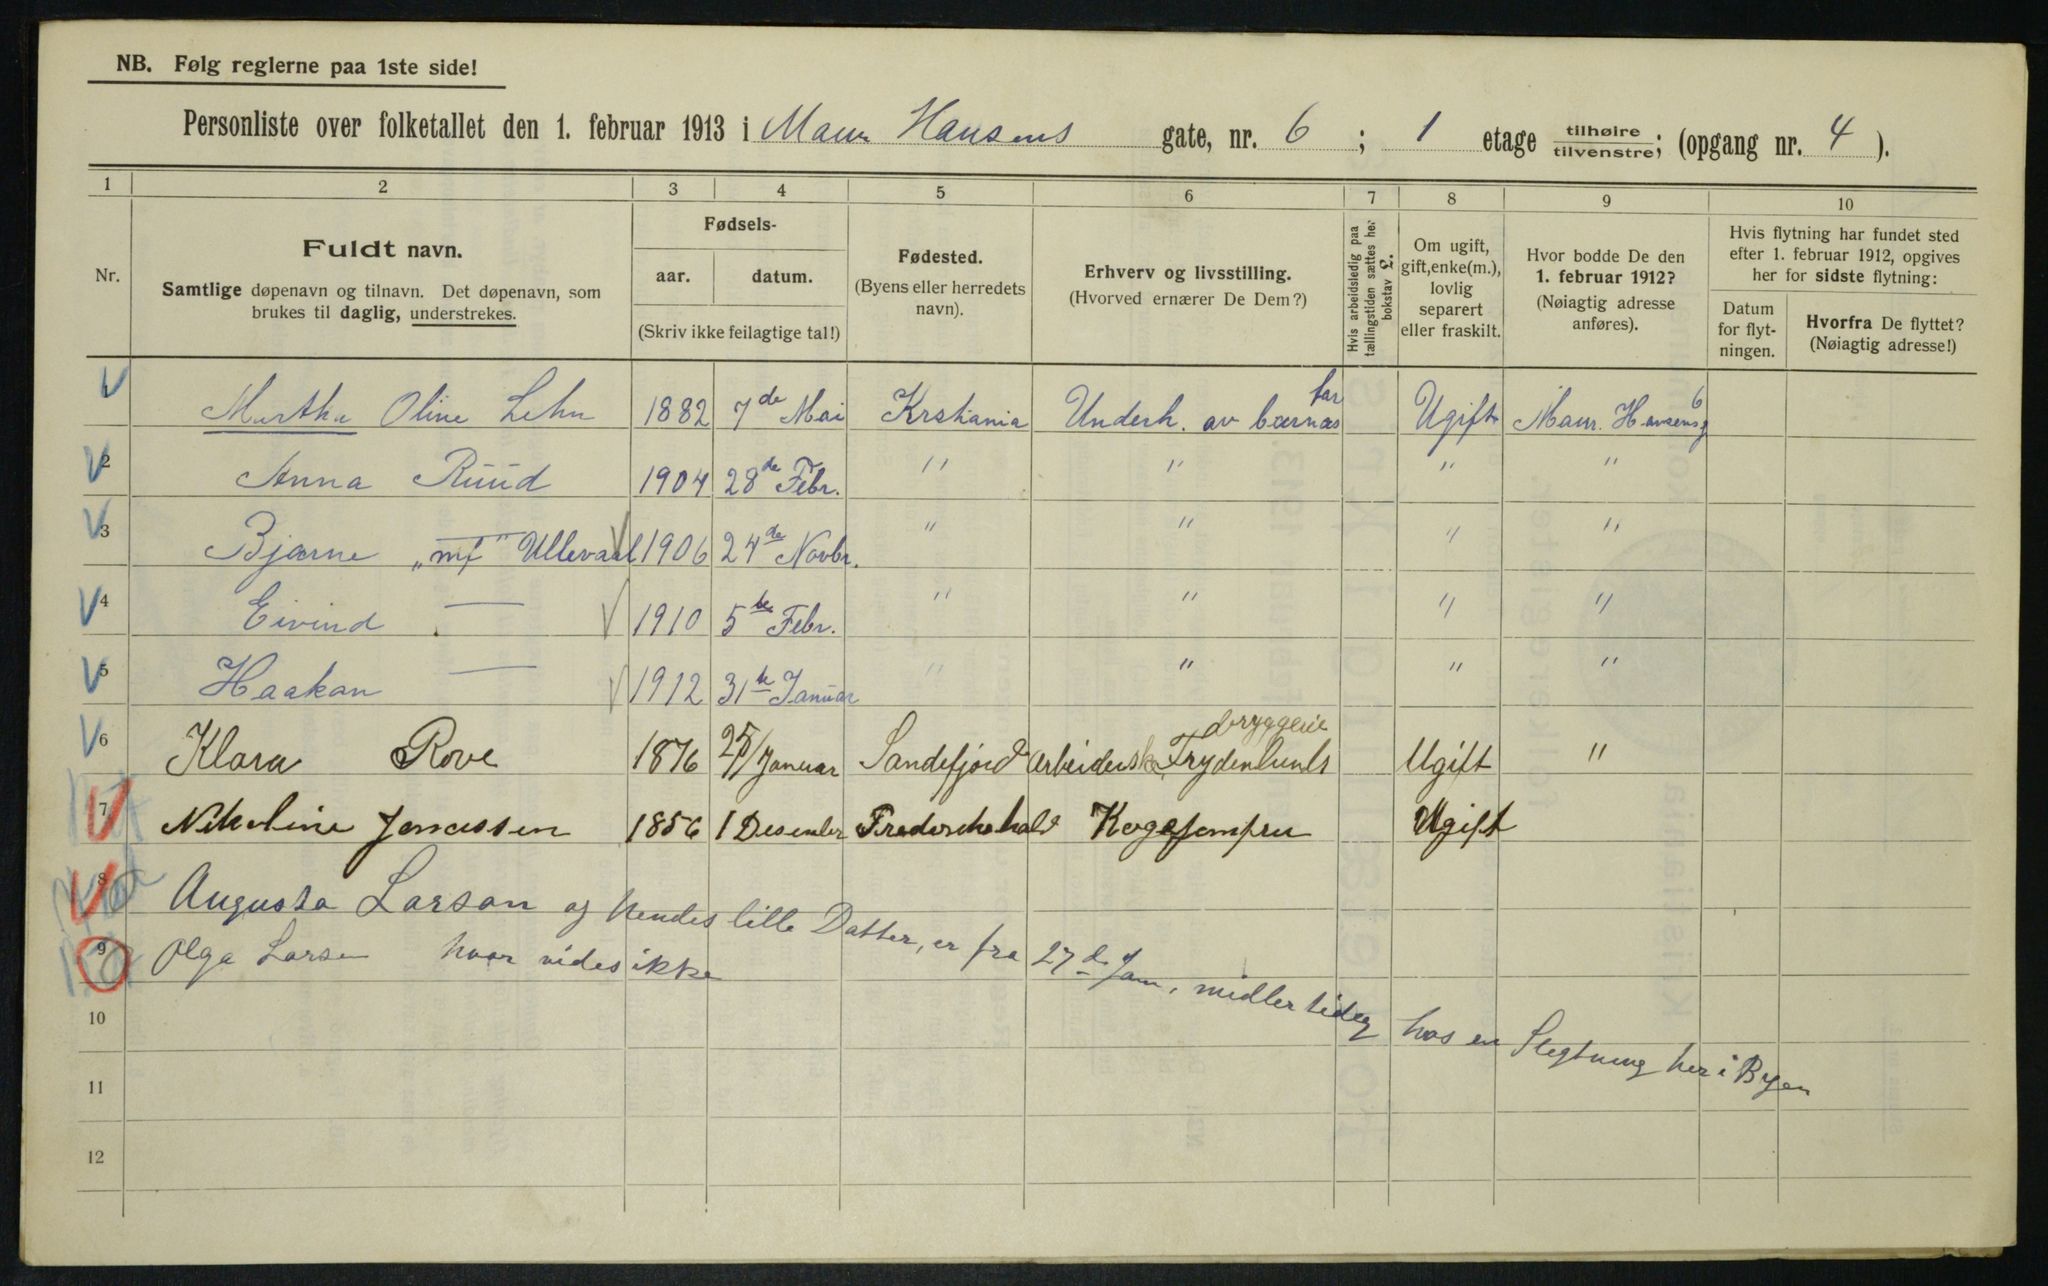 NB. Følg reglerne paa 1ste side!
Personliste over folketallet den 1. februar 1913 i Maur Hansens gate, nr. 6 ; 1 etage tilhøire/tilvenstre; (opgang nr. 4 ).
1 2 3 4 5 6 7 8 9 10
Nr.
Fuldt navn.
Samtlige døpenavn og tilnavn. Det døpenavn, som
brukes til daglig, understrekes.
Fødsels-
aar. datum.
(Skriv ikke feilagtige tal!)
Fødested.
(Byens eller herredets
navn).
Erhverv og livsstilling.
(Hvorved ernærer De Dem?)
Hvis arbeidsledig paa
tællingstiden sættes her
bokstav L.
Om ugift,
gift, enke(m.),
lovlig
separert
eller fraskilt.
Hvor bodde De den
1. februar 1912?
(Nøiagtig adresse
anføres).
Hvis flytning har fundet sted
efter 1. februar 1912, opgives
her for sidste flytning:
Datum
for flyt-
ningen.
Hvorfra De flyttet?
(Nøiagtig adresse!)
1 Martha Oline Lehn 1882 7de Mai Krstiania Underh. av barnas far Ugift Maur. Hansensg 6
2 Anna Ruud 1904 28de Febr. " " " "
3 Bjarne " Ullevaal 1906 24de Novbr. " " " "
4 Eivind — 1910 5te Febr. " " " "
5 Haakan — 1912 31te Januar " " " "
6 Klara Rove 1876 25/1 Januar Sandefjord Arbeiderske Frydenlunds bryggerie Ugift "
7 Nikoline Jonassen 1856 1 Desember Frederikshald Kogejomfru Ugift
8 Augusta Larson og hendes lille Datter, er fra 27d Jan, midlertidig hos en Slegtning her i Byen
9 Olga Larsen hvor vides ikke
10
11
12